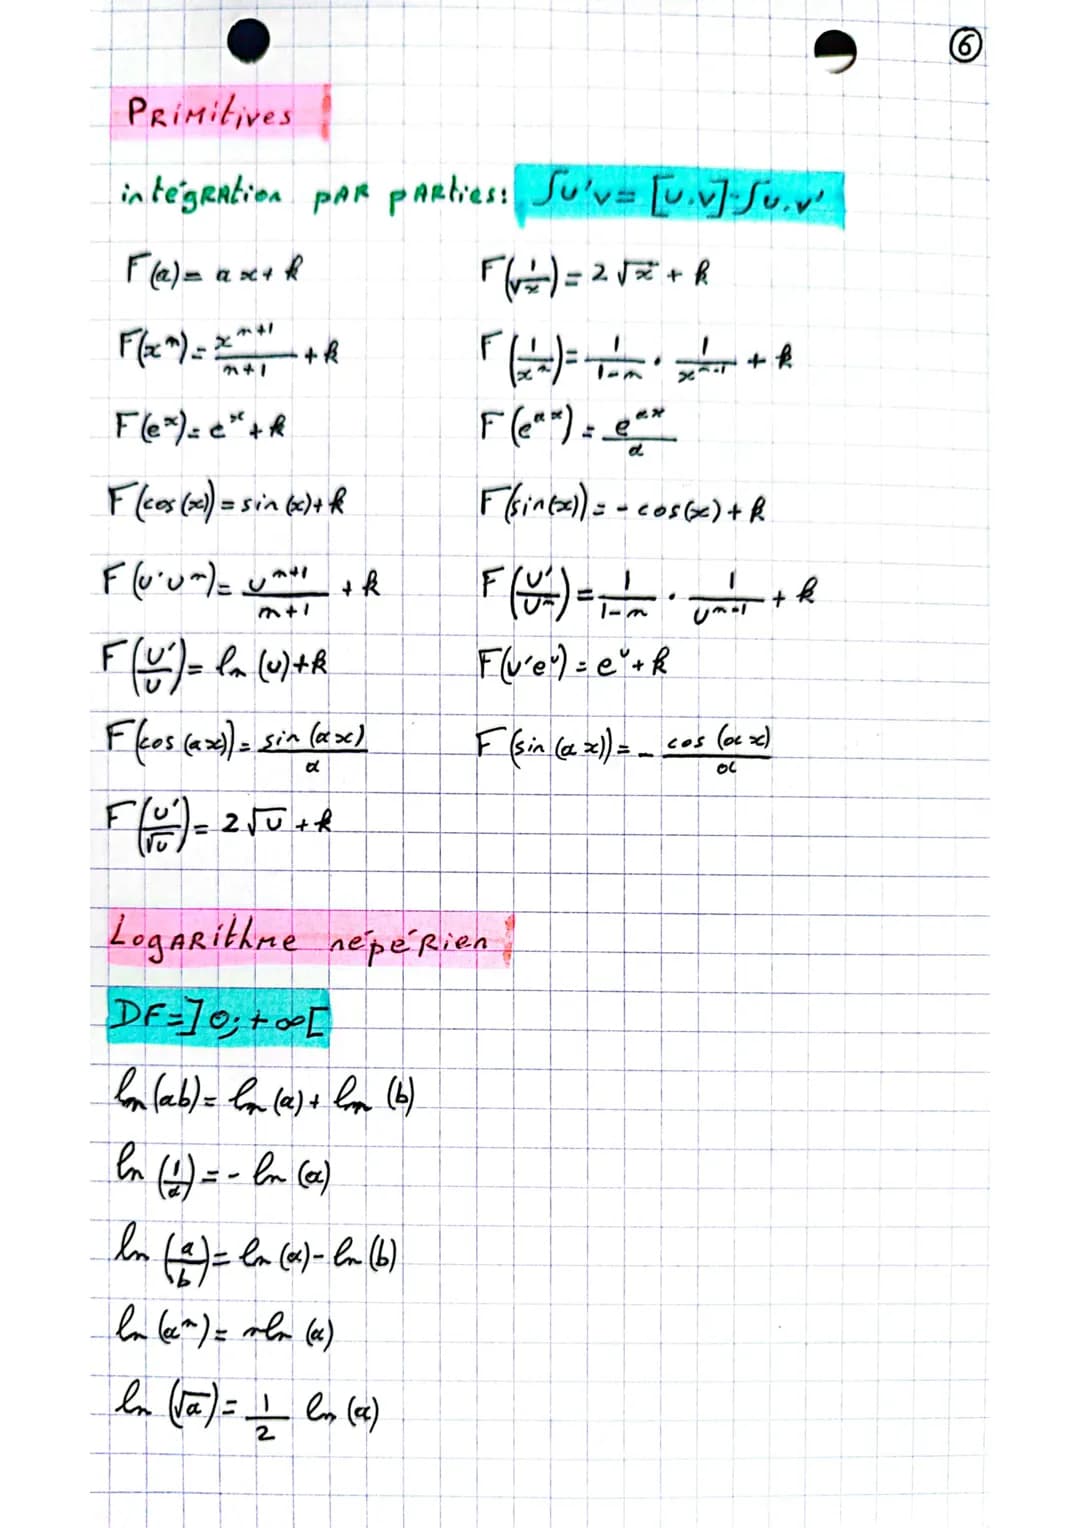 6
Primitives
intégration par parties: ∫u'v = [u.v]-∫u.v'
F(a) = ax + k    F(1/√x) = 2√x + k
F(xⁿ) = xⁿ⁺¹/(n+1) + k    F(1/xⁿ) = 1/(1-n) . 1/xⁿ⁻¹ + k
F(eˣ) = eˣ + k    F(eᵃˣ) = eᵃˣ/a
F(cos(x)) = sin(x) + k    F(sin(x)) = -cos(x) + k
F(u'uⁿ) = uⁿ⁺¹/(n+1) + k    F(u'/uⁿ) = 1/(1-n) . 1/uⁿ⁻¹ + k
F(u'/u) = ln(u) + k    F(u'eᵘ) = eᵘ + k
F(cos(ax)) = sin(ax)/a    F(sin(ax)) = - cos(ax)/a
F(u'/√u) = 2√u + k
Logarithme népérien
DF = ]0; +∞[
ln(ab) = ln(a) + ln(b)
ln(1/a) = - ln(a)
ln(a/b) = ln(a) - ln(b)
ln(aⁿ) = nln(a)
ln(√a) = 1/2 ln(a)